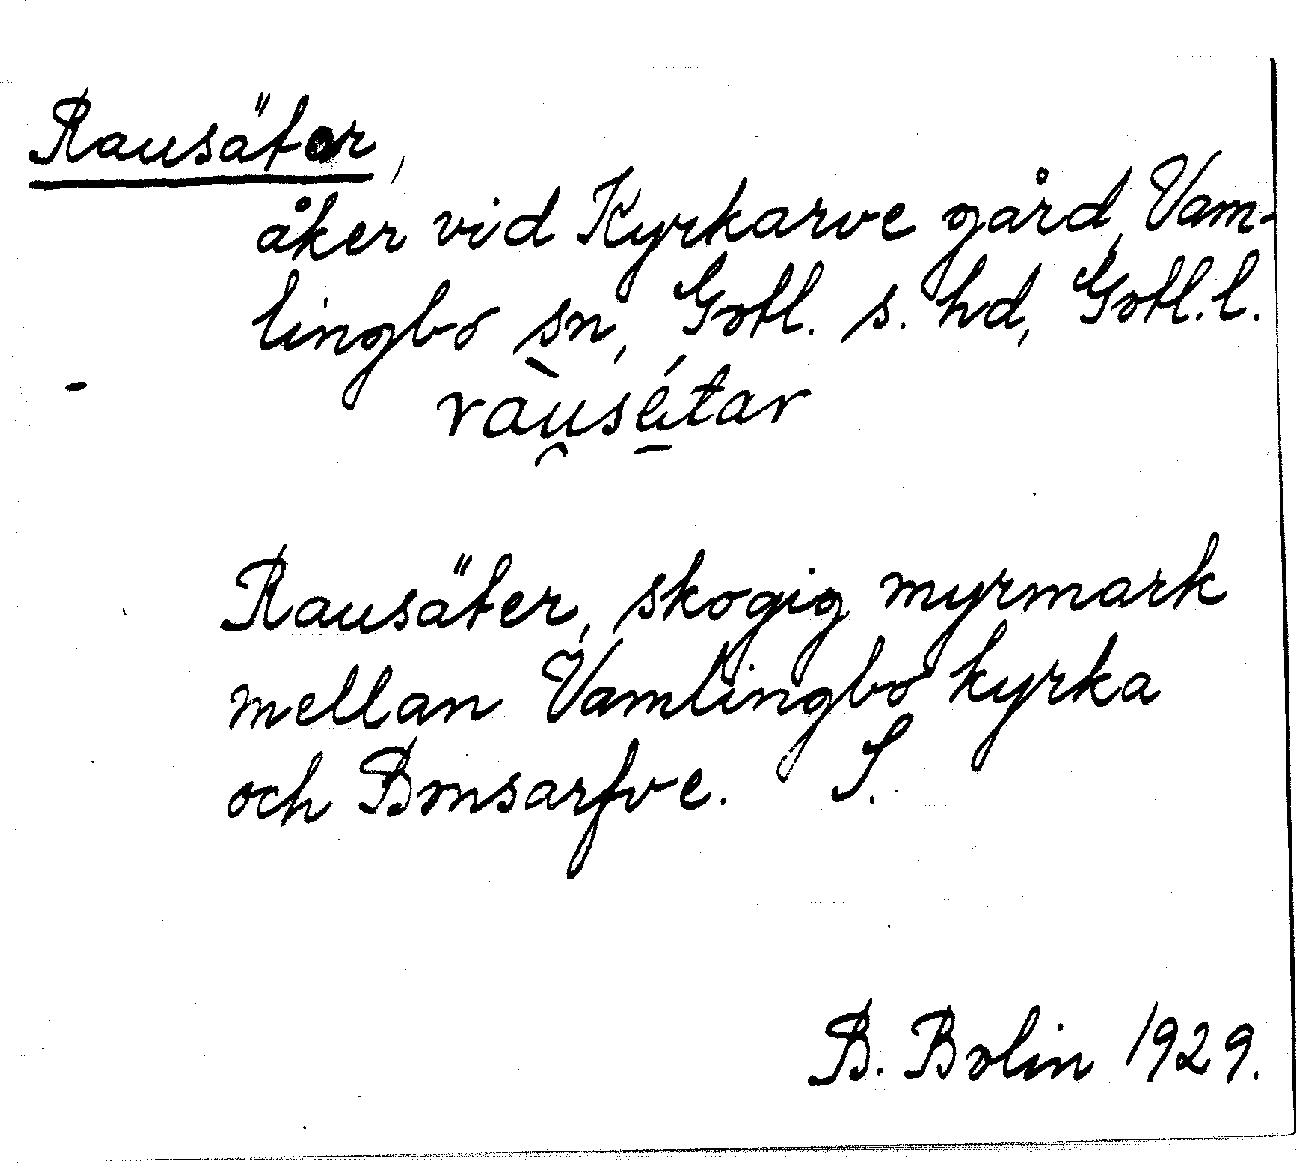 Rausäter,
åker vid Kyrkarve gård, Vam-
lingbo sn, Gotl. s. hd, Gotl. l.
ràu̯sé̠tar
Rausäter, skogig myrmark
mellan Vamlingbo kyrka
och Bonsarfve. S.
B. Bolin 1929.